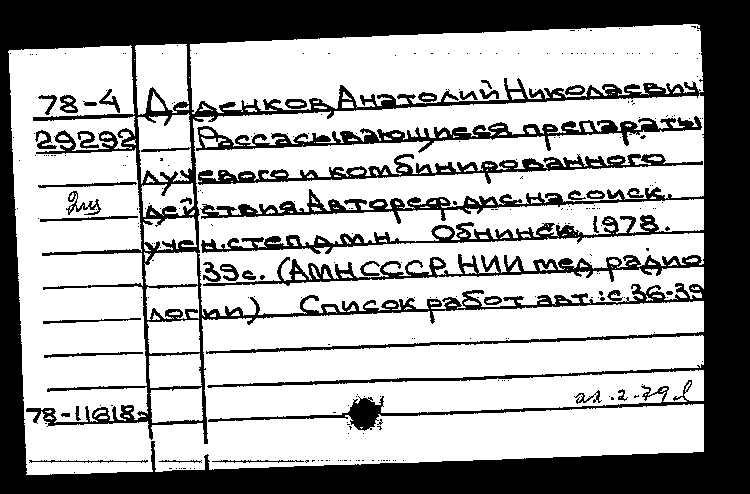 78-4 Деденков, Анатолий Николаевич
29292 Рассасывающиеся препараты
лучевого и комбинированного
действия. Автореф. дис. на соиск.
учен. степ. д.м.н. Обнинск, 1978.
39 с. (АМН СССР. НИИ мед. радио
логии) Список работ авт.: с. 36-39
78-11618